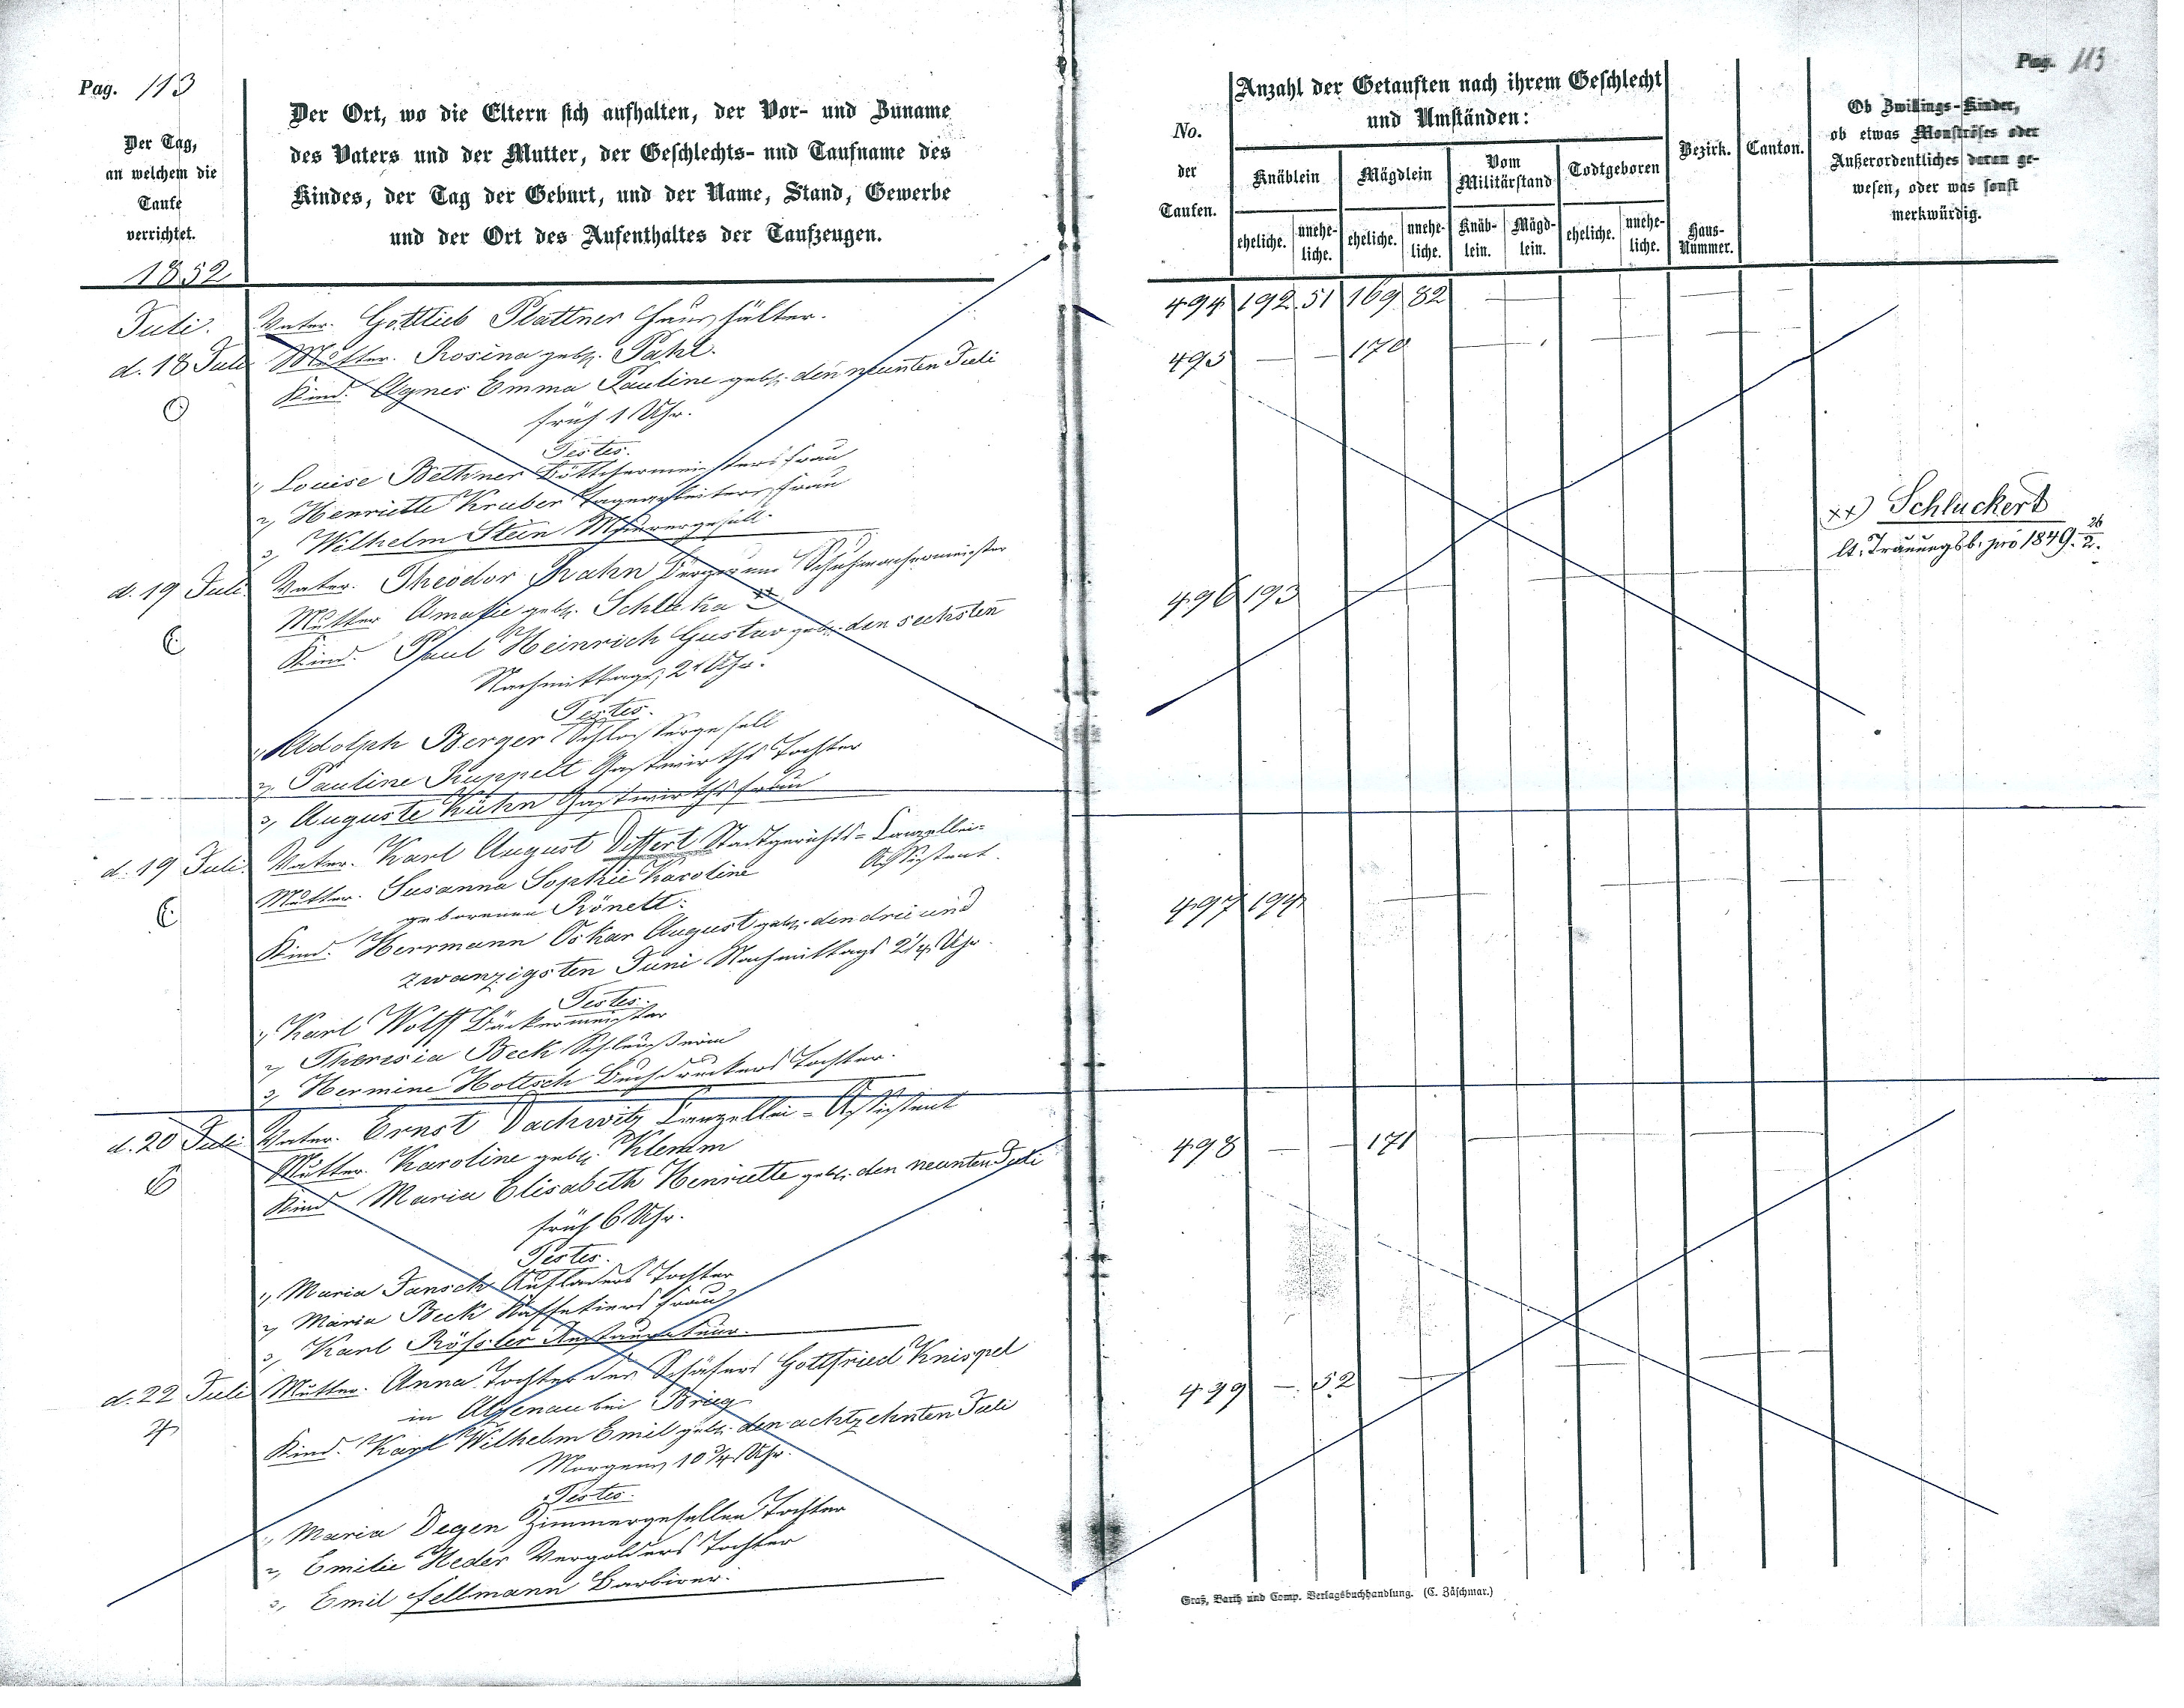 Pag. 113
Der Tag,
an welchem die
Taufe
verrichtet.
1852
Der Ort, wo die Eltern sich aufhalten, der Vor- und Zuname
des Vaters und der Mutter, der Geschlechts- und Taufname des
Kindes, der Tag der Geburt, und der Name, Stand, Gewerbe
und der Ort des Aufenthaltes der Taufzeugen.
Juli.
d. 18 Juli
Vater. Gottlieb Plattner Haushälter.
Mutter. Rosina geb. Pahl.
Kind. Agnes Emma Pauline geb. den neunten Juli
früh 1 Uhr.
Testes.
1, Louise Bethner Böttchermeisters Frau
2, Henriette Kruber Tagearbeiters Frau
3, Wilhelm Stein Maurergesell.
d. 19 Juli.
Vater. Theodor Hahn Bürger und Schuhmachermeister
Mutter Amalie geb. Schluka xx)
Kind. Paul Heinrich Gustav geb. den sechsten
Nachmittags 2 Uhr.
Testes.
1, Adolph Berger Schlossergesell
2, Pauline Ruppelt Gastwirths Tochter
3, Auguste Kühn Gastwirths Frau
d. 19 Juli.
Vater. Karl August Dittert Stadtgerichts-Canzellei-
Assistent.
Mutter. Susanna Sophie Karoline
geborenen Rönelt:
Kind. Herrmann Oskar August geb. den drei und
zwanzigsten Juni Nachmittags 2 1/4 Uhr.
Testes.
1, Karl Wolff Bäckermeister
2, Theresia Beck Schleußerin
3, Hermine Hottsch Buchdruckers Tochter.
d. 20 Juli
Vater. Ernst Dachwitz Canzellei-Assistent
Mutter. Karoline geb. Klemm
Kind Maria Elisabeth Henriette geb. den neunten Juli
früh 6 Uhr.
Testes.
1, Maria Jansch Aufladers Tochter
2, Maria Beck Kaffetiers Frau
3, Karl Rössler Restaurateur.
d. 22 Juli
Mutter. Anna Tochter des Schäfers Gottfried Knispel
in Alzenau bei Brieg
Kind. Karl Wilhelm Emil geb. den achtzehnten Juli
Morgens 10 3/4 Uhr.
Testes.
1, Maria Degen Zimmergesellen Tochter
2, Emilie Heder Vergolders Tochter
3, Emil Fellmann Barbirer.
Pag. 113
No.
der
Taufen.
Anzahl der Getauften nach ihrem Geschlecht
und Umständen:
Knäblein
Mägdlein
Vom
Militärstand
Todtgeboren
eheliche.
unehe-
liche.
eheliche.
unehe-
liche.
Knäb-
lein.
Mägd-
lein.
eheliche.
unehe-
liche.
Bezirk.
Haus-
Nummer.
Canton.
Ob Zwillings-Kinder,
ob etwas Monströses oder
Außerordentliches daran ge-
wesen, oder was sonst
merkwürdig.
494 192 51 169 82
495 — — 170
xx) Schluckert
lt. Trauungsb. pro 1849. 26/2.
496 193
497 194
498 — — 171
499 — 52
Graß, Barth und Comp. Verlagsbuchhandlung. (C. Zäschmar.)